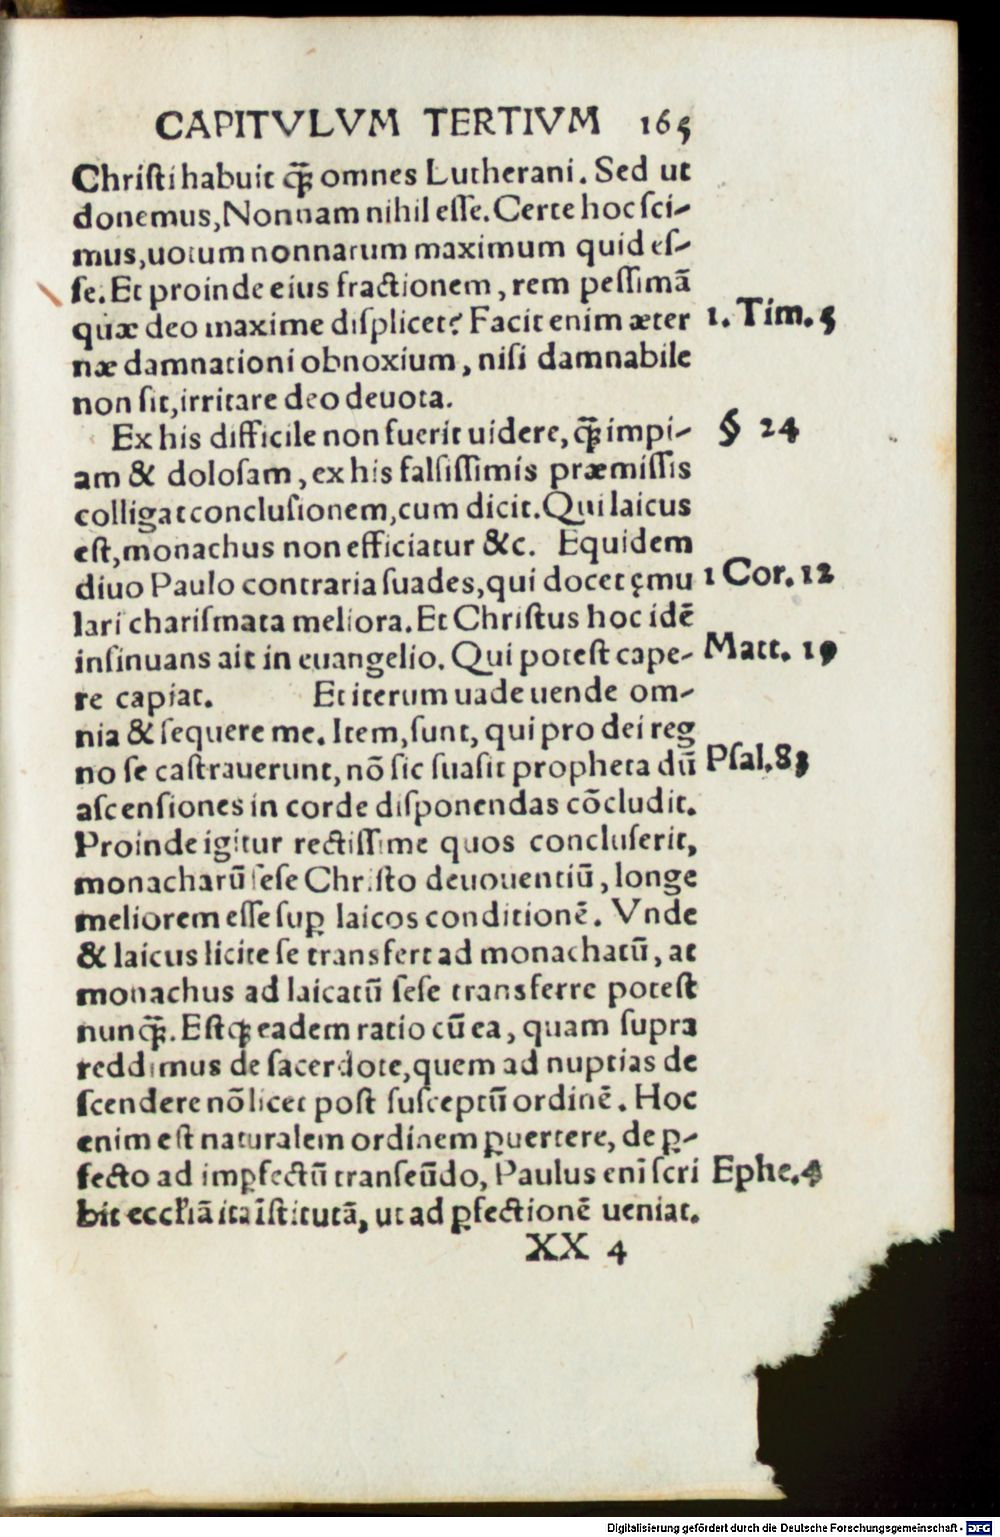 CAPITVLVM TERTIVM 165
Chriſti habuit q̄ꝫ omnes Lutherani. Sed ut
donemus, Nonnam nihil eſſe. Certe hoc ſci-
mus, uotum nonnarum maximum quid eſ-
ſe. Et proinde eius fractionem, rem peſſimā
quæ deo maxime diſplicet? Facit enim æter 1. Tim. 5
næ damnationi obnoxium, niſi damnabile
non ſit, irritare deo deuota.
Ex his difficile non fuerit uidere, q̄ꝫ impi- § 24
am & doloſam, ex his falſiſſimis præmiſſis
colligat concluſionem, cum dicit. Qui laicus
eſt, monachus non efficiatur &c. Equidem
diuo Paulo contraria ſuades, qui docet ęmu 1 Cor. 12
lari chariſmata meliora. Et Chriſtus hoc idē
inſinuans ait in euangelio. Qui poteſt cape- Matt. 19
re capiat. Et iterum uade uende om-
nia & ſequere me. Item, ſunt, qui pro dei reg
no ſe caſtrauerunt, nō ſic ſuaſit propheta dū Pſal. 83
aſcenſiones in corde diſponendas cōcludit.
Proinde igitur rectiſſime quos concluſerit,
monacharū ſeſe Chriſto deuouentiū, longe
meliorem eſſe ſuꝑ laicos conditionē. Vnde
& laicus licite ſe transfert ad monachatū, at
monachus ad laicatū ſeſe transferre poteſt
nunq̄ꝫ. Eſtqꝫ eadem ratio cū ea, quam ſupra
reddimus de ſacerdote, quem ad nuptias de
ſcendere nō licet poſt ſuſceptū ordinē. Hoc
enim eſt naturalem ordinem ꝑuertere, de ꝑ-
fecto ad imꝑfectū tranſeūdo, Paulus enī ſcri Ephe. 4
bit eccl'iā ita īſtitutā, ut ad ꝑfectionē ueniat.
XX 4
Digitalisierung gefördert durch die Deutsche Forschungsgemeinschaft - DFG